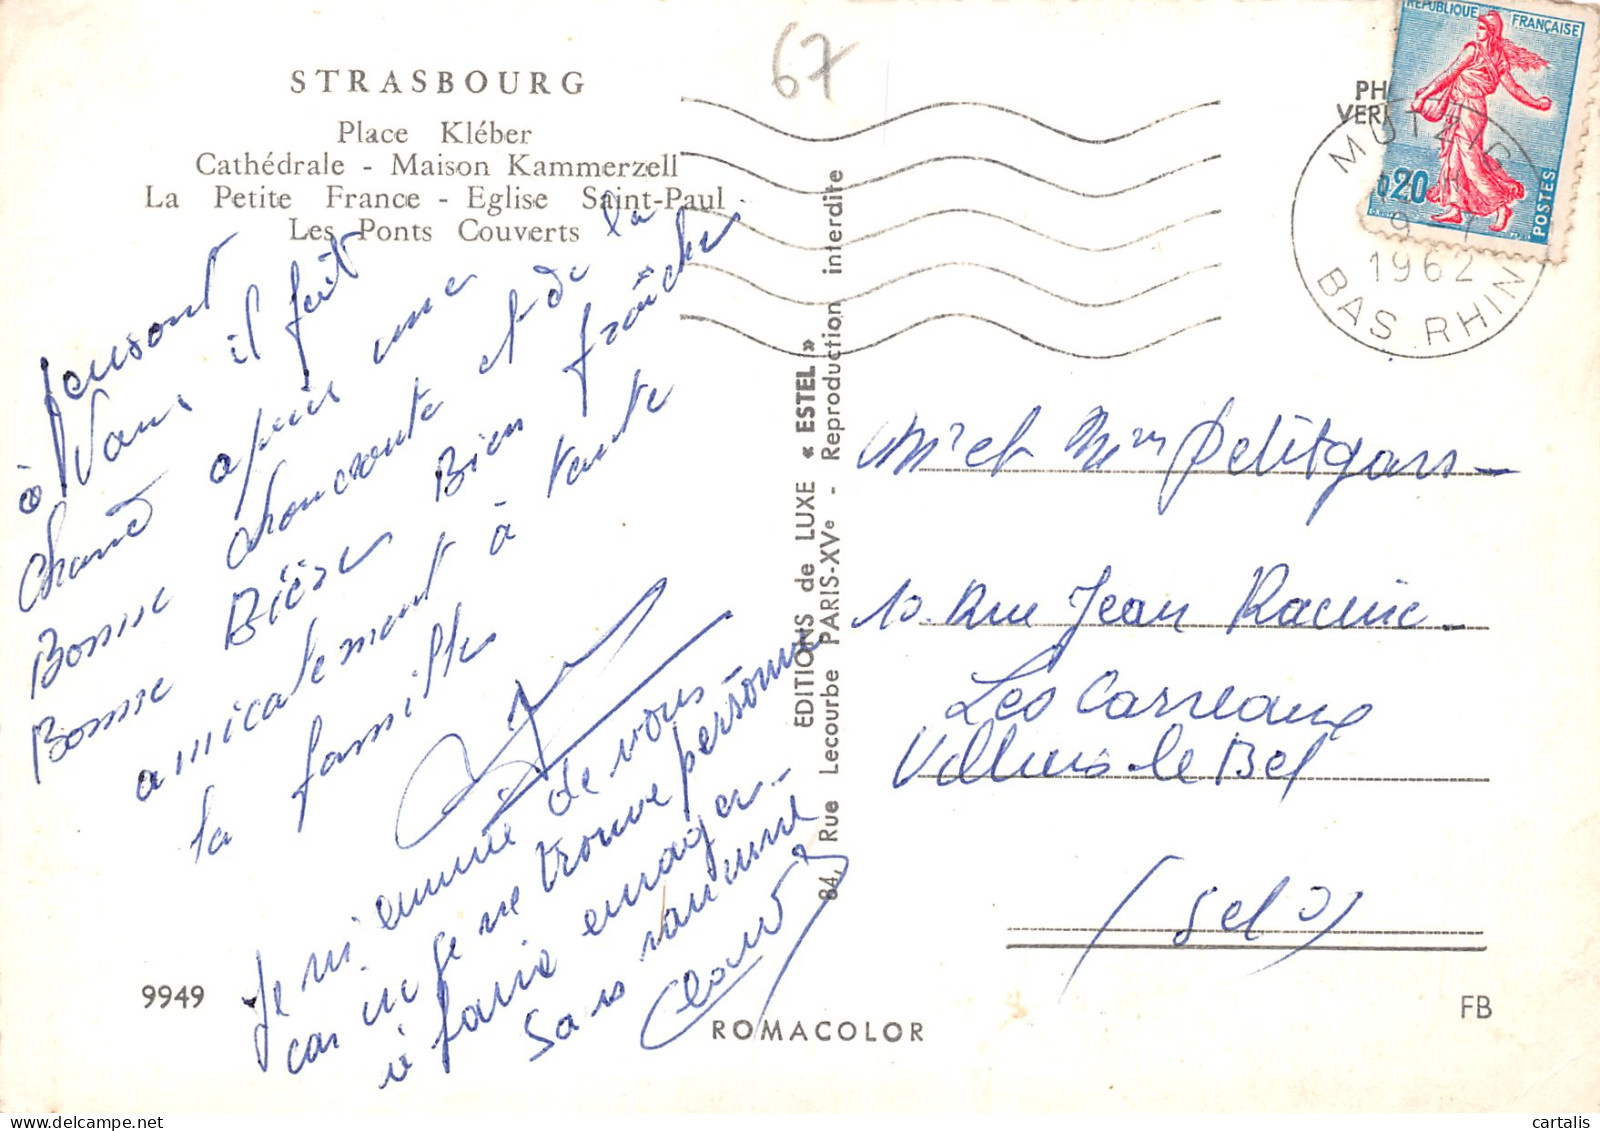 STRASBOURG
Place Kléber
Cathédrale - Maison Kammerzell
La Petite France - Eglise Saint-Paul
Les Ponts Couverts
67
PH
VER
REPUBLIQUE FRANÇAISE
0,20
POSTES
MUTZIG
9
1962
BAS RHIN
pensont
à Vous il fait
chaud après une
Bonne choucroute et de la
Bonne Bière Bien fraîche
amicalement à toute
la famille
Je m'ennuie de vous
car je ne trouve personne
à faire enrager.
Sans rancune
EDITIONS de LUXE « ESTEL »
84, Rue Lecourbe PARIS-XVe - Reproduction interdite
Mr et Mme Petitgars
10 Rue Jean Racine
Les Carreaux
Villiers le Bel
(S et O)
9949
ROMACOLOR
FB
cartalis